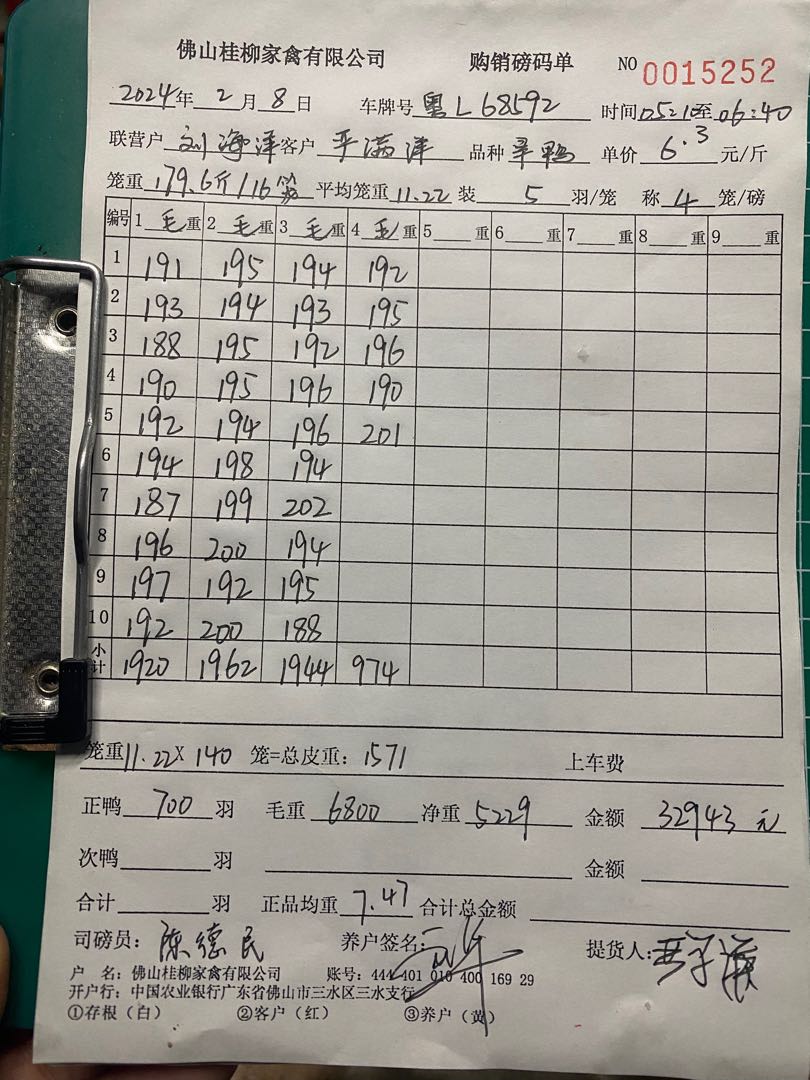 佛山桂柳家禽有限公司 购销磅码单 NO 0015252
2024年 2 月 8 日 车牌号 粤L68592 时间 0521至06:40
联营户 刘海洋 客户 品种 单价 6.3 元/斤
笼重 179.6斤/16笼 平均笼重 11.22 装 5 羽/笼 称 4 笼/磅
编号 1 毛 重 2 毛 重 3 毛 重 4 毛 重 5 重 6 重 7 重 8 重 9 重
1 191 195 194 192
2 193 194 193 195
3 188 195 192 196
4 190 195 196 190
5 192 194 196 201
6 194 198 194
7 187 199 202
8 196 200 194
9 197 192 195
10 192 200 188
小计 1920 1962 1944 974
笼重 11.22X 140 笼=总皮重: 1571 上车费
正鸭 700 羽 毛重 6800 净重 5229 金额 32943 元
次鸭 羽 金额
合计 羽 正品均重 7.47 合计总金额
司磅员: 陈德民 养户签名: 提货人:
户 名: 佛山桂柳家禽有限公司 账号: 444 401 010 400 169 29
开户行: 中国农业银行广东省佛山市三水区三水支行
①存根(白) ②客户(红) ③养户(黄)